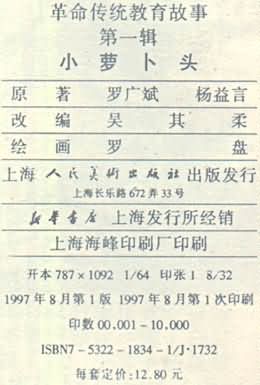 革命传统教育故事
第一辑
小萝卜头
原 著 罗广斌 杨益言
改 编 吴 其 柔
绘 画 罗 盘
上海人民美术出版社出版发行
上海长乐路672弄33号
新华书店上海发行所经销
上海海峰印刷厂印刷
开本787×1092 1/64 印张1 8/32
1997年8月第1版 1997年8月第1次印刷
印数00.001-10.000
ISBN7-5322-1834-1/J·1732
每套定价:12.80元